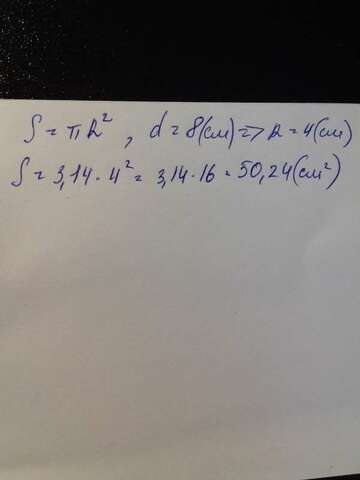 S = πr², d = 8(см) => r = 4(см)
S = 3,14 · 4² = 3,14 · 16 = 50,24(см²)